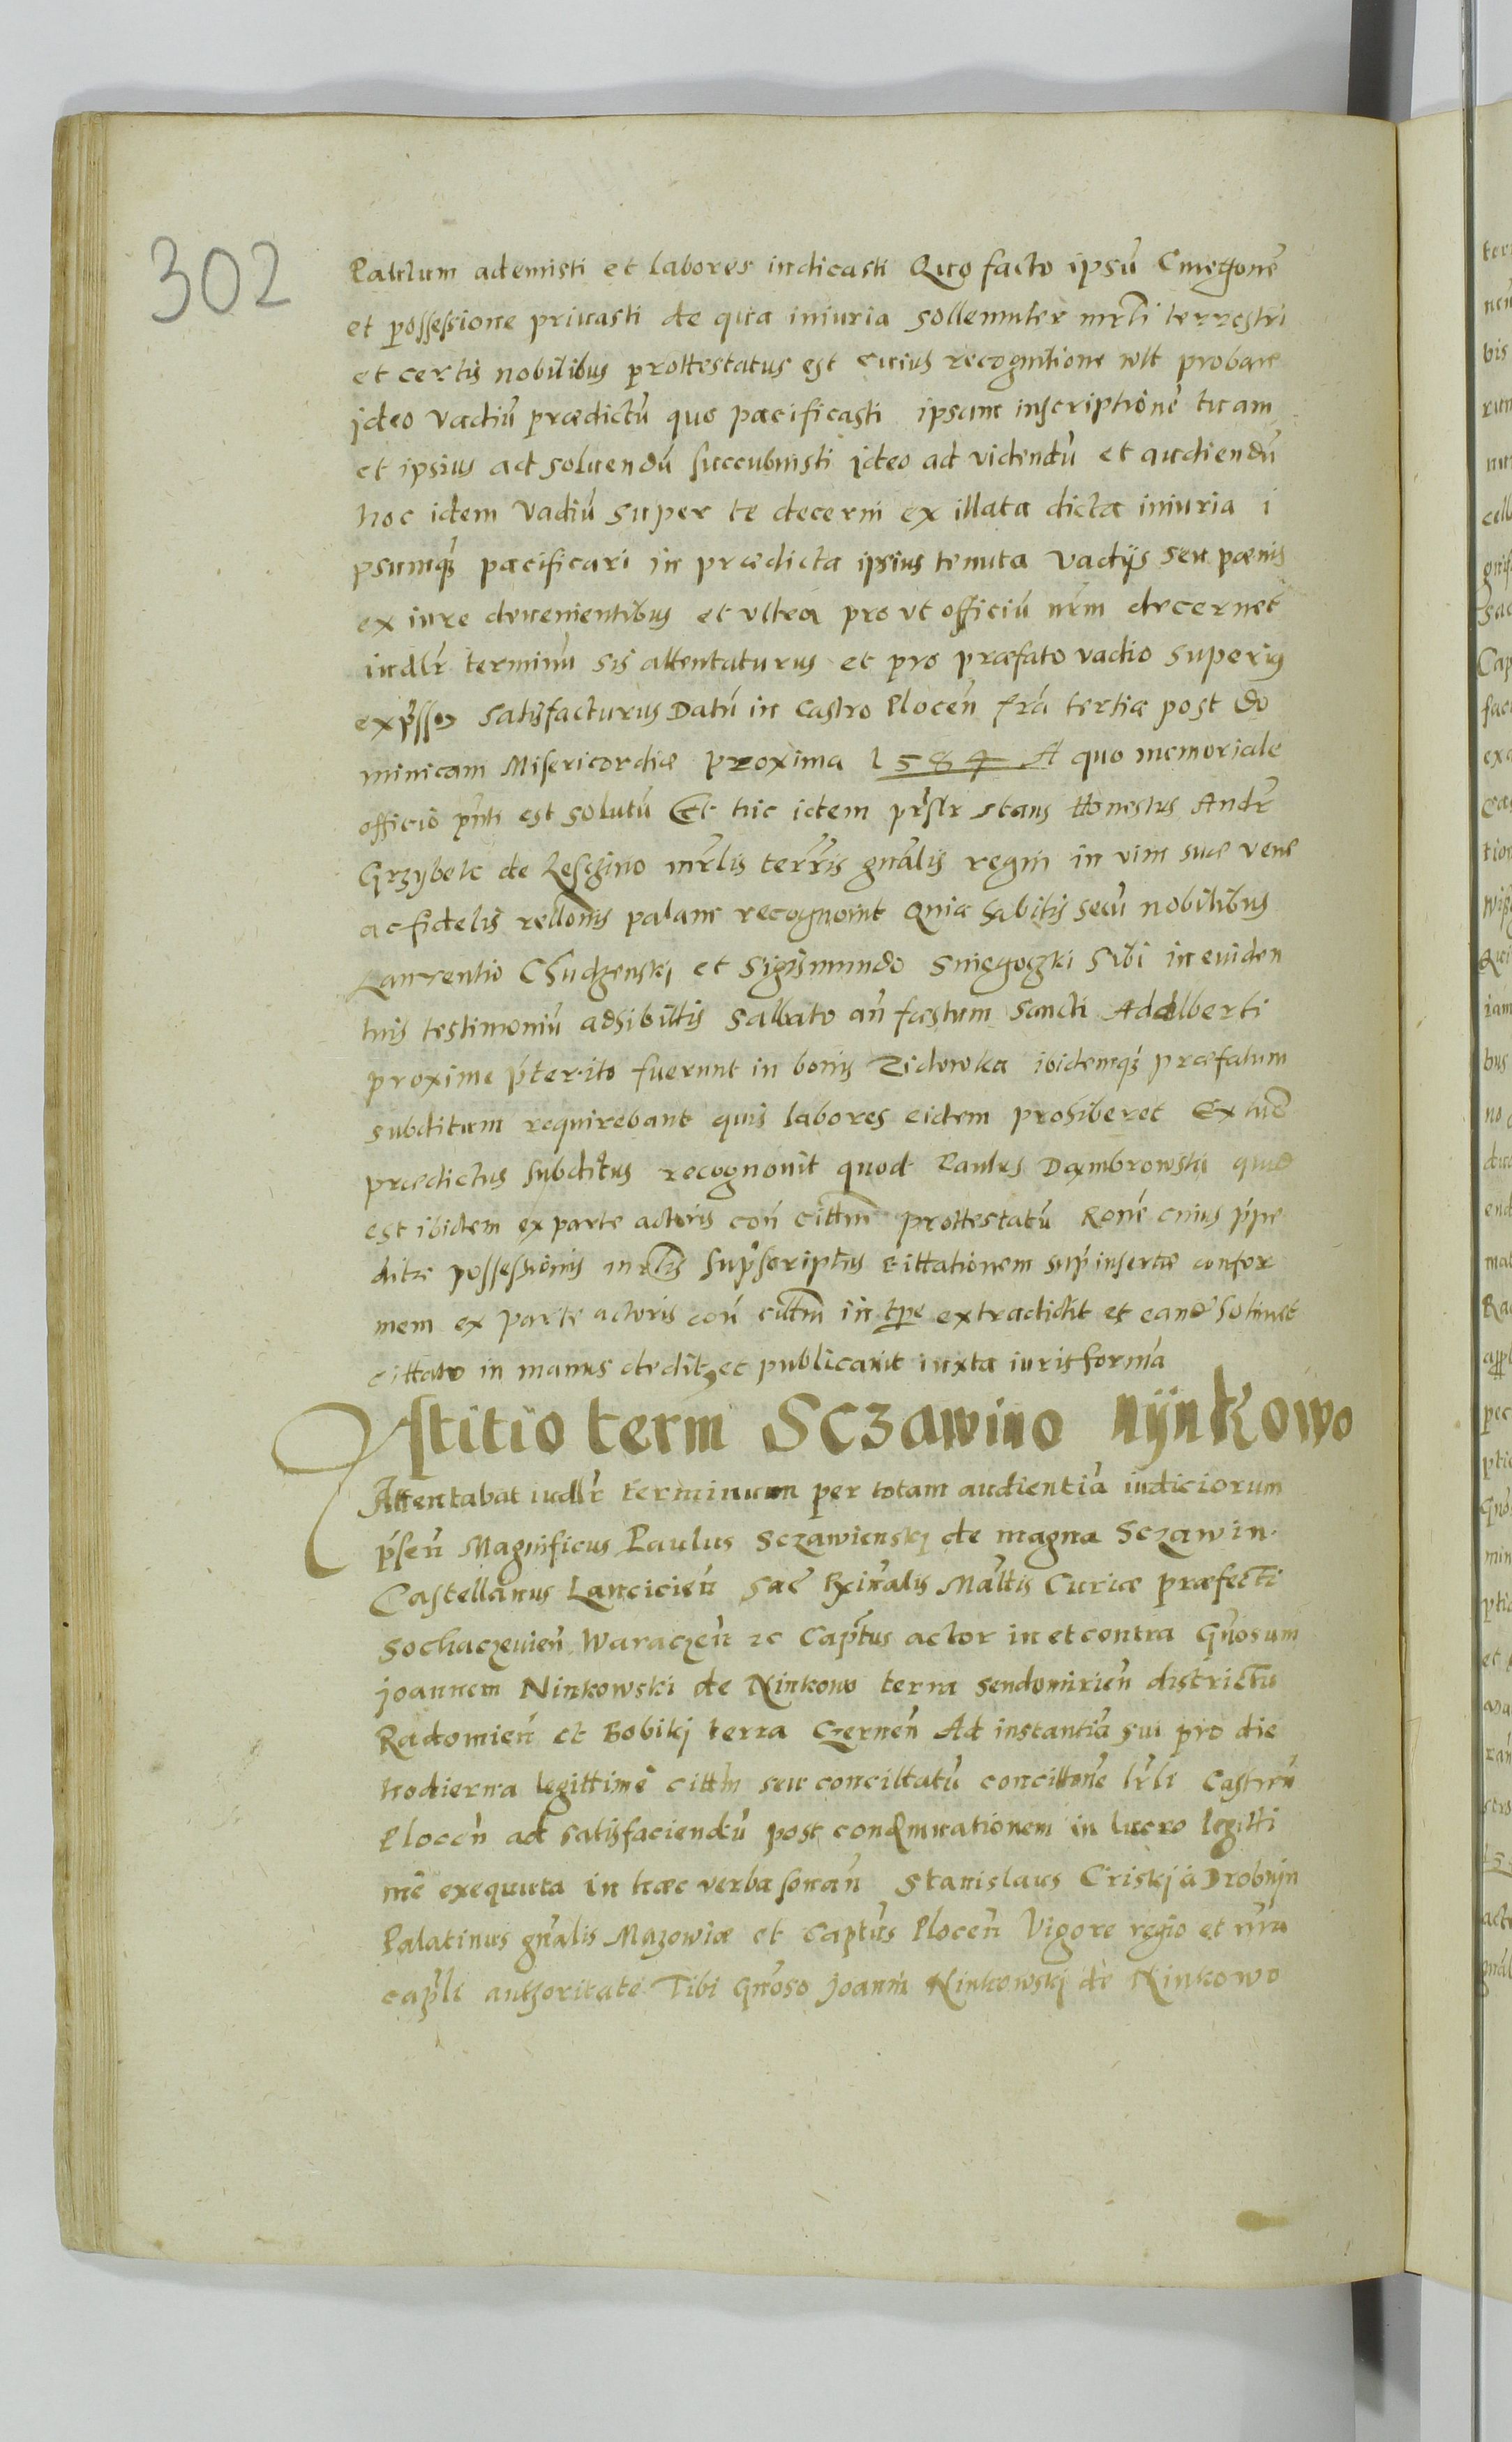 302
Paulum ademisti et labores indicasti Quo facto ipsũ Cmethonẽ
et possessione priuasti de qua iniuria sollemniter mrli terrestri
et certis nobilibus prottestatus est cuius recognitione vult probare
ideo vadiũ prædictũ quo pacificasti ipsam inscriptionẽ tuam
et ipsius ad soluendũ succubuisti ideo ad videndũ et audiendũ
hoc idem vadiũ super te decerni ex illata dicta iniuria i
psumq3 pacificari in prædicta ipsius tenuta vadijs seu pænis
ex iure deuenientibus et vltra pro vt officiũ nrm decernet
iudlr terminũ sis attentaturus et pro præfato vadio superius
expsso satisfacturus Datũ in Castro Ploceñ fria tertia post do
minicam Misericordiæ proxima 1584 A quo memoriale
officio pnti est solutũ Et hic idem prslr stans Honestus Andr
Grzybek de Leschino mrlis terrris gnalis regni in vim suæ veræ
ac fidelis rellonis palam recognouit Quia habitis secũ nobilibus
Laurentio Chudzenskj et Sigismundo Sniegoczki sibi in euiden
tius testimoniũ adhibittis Sabbato añ fæstum Sancti Adalberti
proxime pterito fuerunt in bonis Zidowka ibidemq3 præfatum
subditum requirebant quis labores eidem prohiberet Ex tuc
prædictus subditus recognouit quod Paulus Dambrowski quod
est ibidem ex parte actoris coñ cittm prottestatũ Ronẽ cuius ppe
ditæ possessionis mrlis supscriptus cittationem sup insertæ confor
mem ex parte actoris coñ cittm in tpe extradidit et eand
cittato in manus dedit ec publicauit iuxta iuris formã
Astitio term Sczawino nÿnkowo
Attentabat iudlr terminum per totam audientiã iudiciorum
pseñ Magnificus Paulus Sczawienskj de magna Sczawin
Castellanus Lancicieñ Sac Rginalis Mattis Curiæ præfecti
Sochaczeuieñ Waraczeñ 2c Captus actor in et contra Gnosum
joannem Ninkowski de Ninkowo terra Sendomirieñ districtu
Radomieñ et Bobikj terra Czerneñ Ad instantiã sui pro die
hodierna legittimè cittm seu concittatũ concittonẽ lrli Castreñ
Ploceñ ad satisfaciendũ post condmnationem in lucro legitti
mè exequuta in hæc verba sonañ Stanislaus Criskj à Drobnÿn
Palatinus gnalis Mazowiæ et Captus Ploceñ Vigore regio et nra
capli authoritate Tibi Gnoso joanni Ninkowskj de Ninkowo